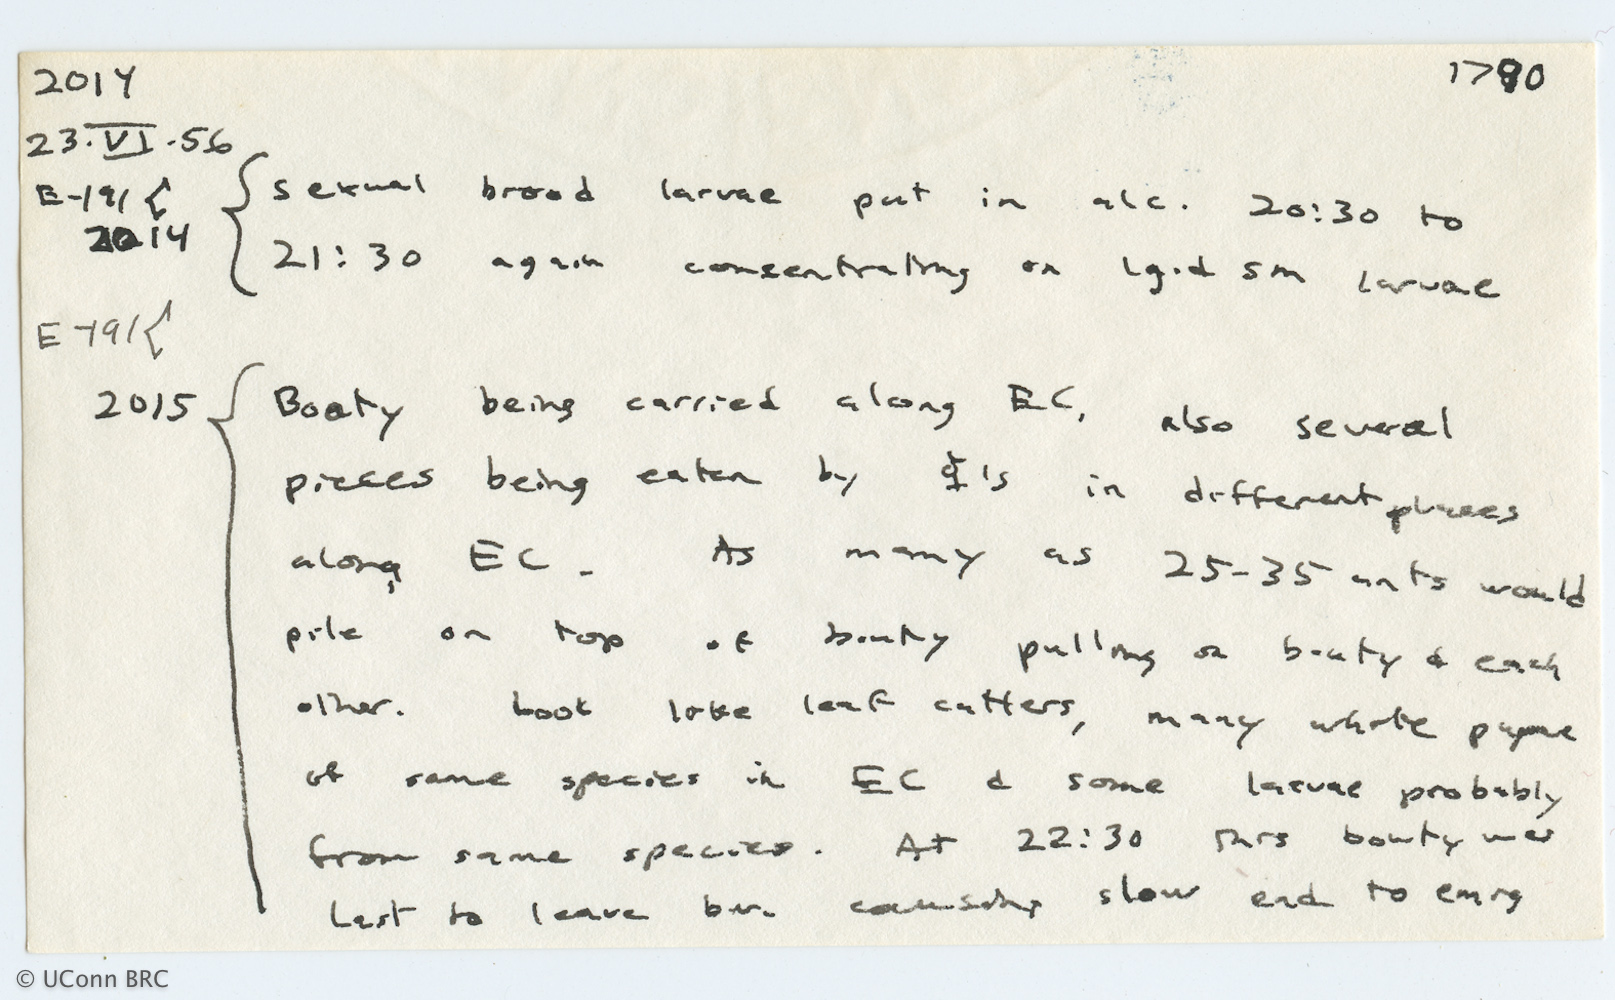 2014 1790
23.VI.56
E-191{
2014 { sexual brood larvae put in alc. 20:30 to
21:30 again consentrating on lg. & sm larvae
E-191{
2015 { Booty being carried along EC, also several
pieces being eaten by ☿'s in different places
along EC. As many as 25-35 ants would
pile on top of booty pulling on booty & each
other. Look like leaf cutters, many white pupae
of same species in EC & some larvae probably
from same species. At 22:30 this booty was
last to leave biv. causing slow end to emrg
© UConn BRC